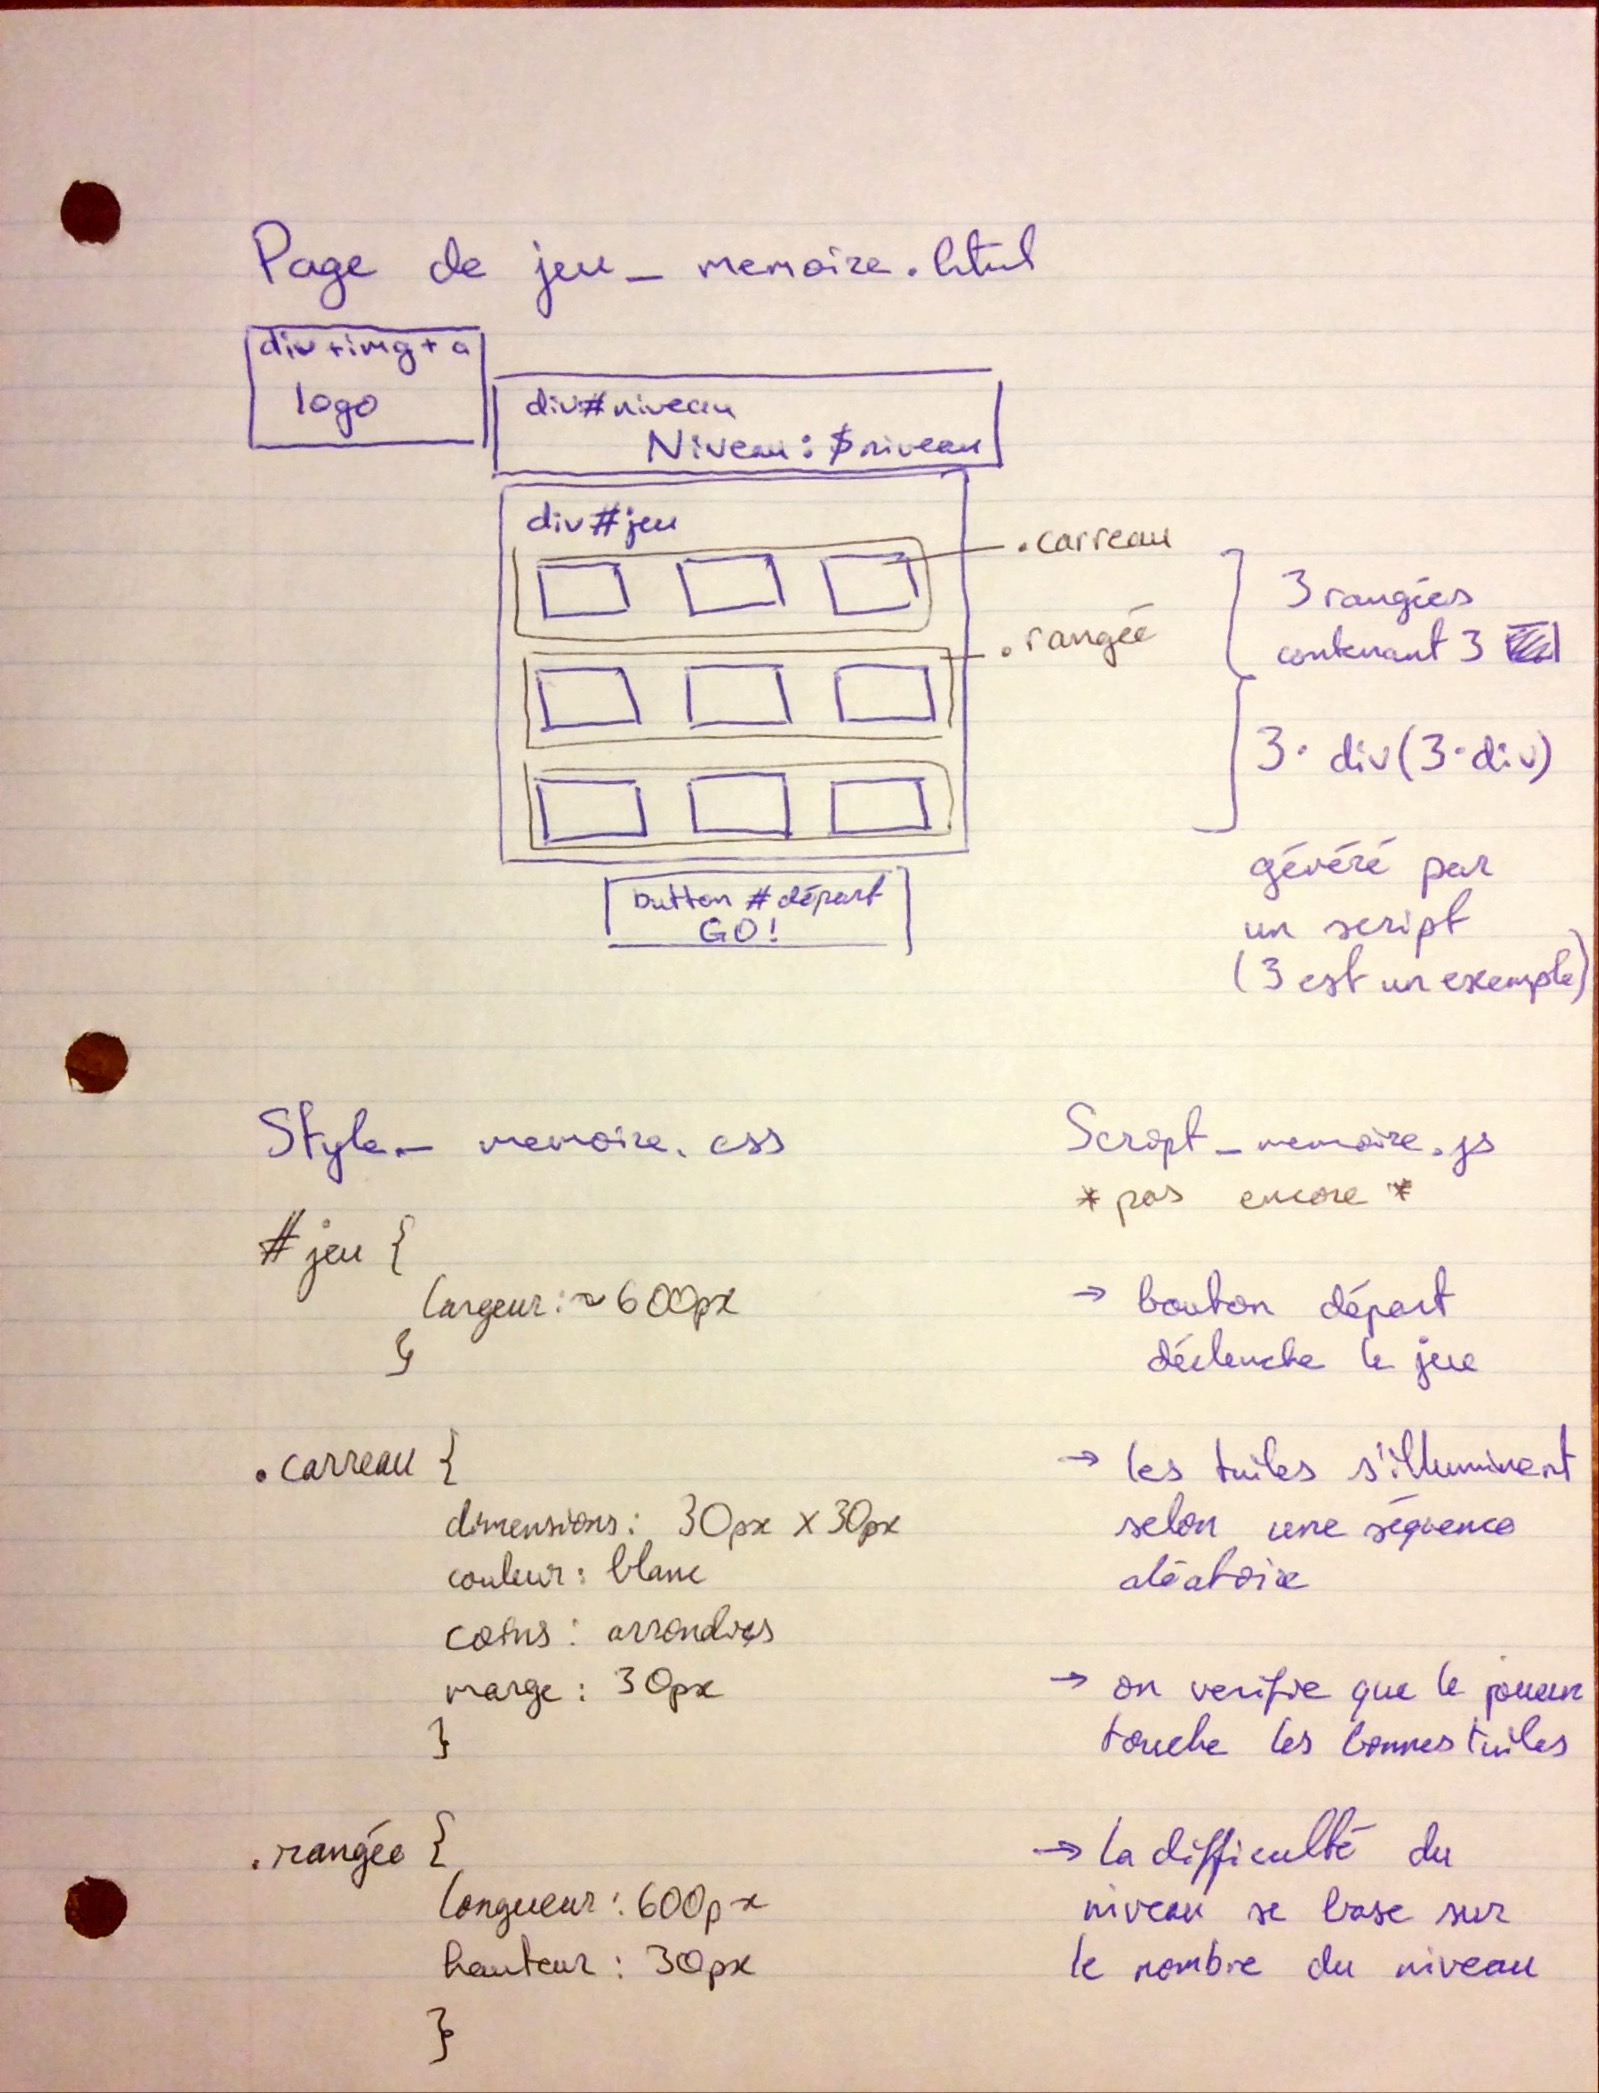 Page de jeu_memoire.html
div+img+a
logo
div#niveau
Niveau: $niveau
div#jeu
.carreau
.rangée
3 rangées
contenant 3
3· div(3·div)
généré par
un script
(3 est un exemple)
button #départ
GO!
Style_memoire.css
#jeu {
largeur: ~600px
}
.carreau {
dimensions: 30px x 30px
couleur: blanc
coins: arrondies
marge: 30px
}
.rangée {
longueur: 600px
hauteur: 30px
}
Script_memoire.js
*pas encore*
→ bouton départ
déclenche le jeu
→ les tuiles s'illuminent
selon une séquence
aléatoire
→ on verifie que le joueur
touche les bonnes tuiles
→ la difficulté du
niveau se base sur
le nombre du niveau